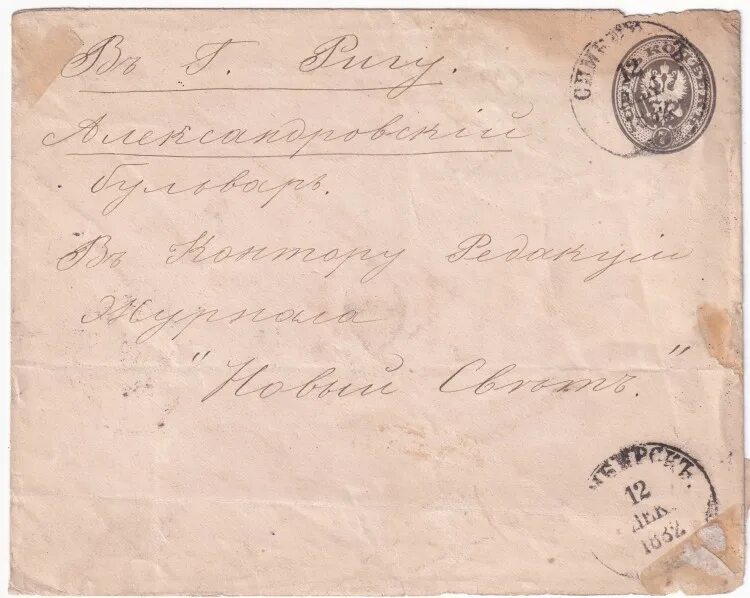 Въ Г. Ригу.
Александровскій
бульваръ.
Въ Контору Редакціи
Журнала
"Новый Свѣтъ."
СИМБИР
12
СЕМЬ КОПѢЕКЪ
7
МБИРСКЪ.
12
ДЕК.
1882